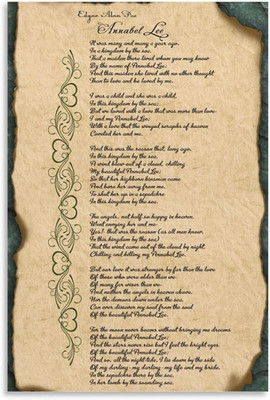 Edgar Allan Poe
Annabel Lee
It was many and many a year ago,
In a kingdom by the sea,
That a maiden there lived whom you may know
By the name of Annabel Lee;
And this maiden she lived with no other thought
Than to love and be loved by me.
I was a child and she was a child,
In this kingdom by the sea;
But we loved with a love that was more than love-
I and my Annabel Lee;
With a love that the winged seraphs of heaven
Coveted her and me.
And this was the reason that, long ago,
In this kingdom by the sea,
A wind blew out of a cloud, chilling
My beautiful Annabel Lee;
So that her highborn kinsman came
And bore her away from me,
To shut her up in a sepulchre
In this kingdom by the sea.
The angels, not half so happy in heaven,
Went envying her and me-
Yes!- that was the reason (as all men know,
In this kingdom by the sea)
That the wind came out of the cloud by night,
Chilling and killing my Annabel Lee.
But our love it was stronger by far than the love
Of those who were older than we-
Of many far wiser than we-
And neither the angels in heaven above,
Nor the demons down under the sea,
Can ever dissever my soul from the soul
Of the beautiful Annabel Lee.
For the moon never beams without bringing me dreams
Of the beautiful Annabel Lee;
And the stars never rise but I feel the bright eyes
Of the beautiful Annabel Lee;
And so, all the night-tide, I lie down by the side
Of my darling- my darling- my life and my bride,
In the sepulchre there by the sea,
In her tomb by the sounding sea.